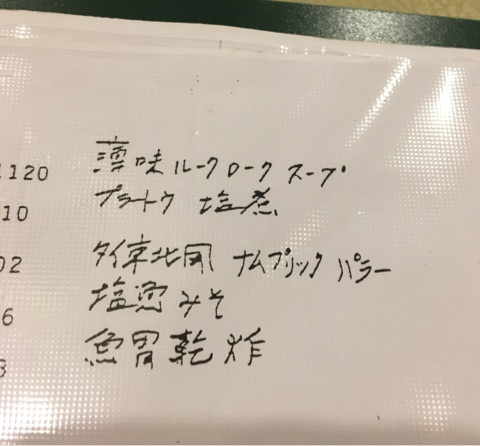 1120 薄味ルークロークスープ
10 プラトウ 塩煮
02 タイ東北風 ナムプリック パラー
6 塩魚みそ
3 魚胃乾炸